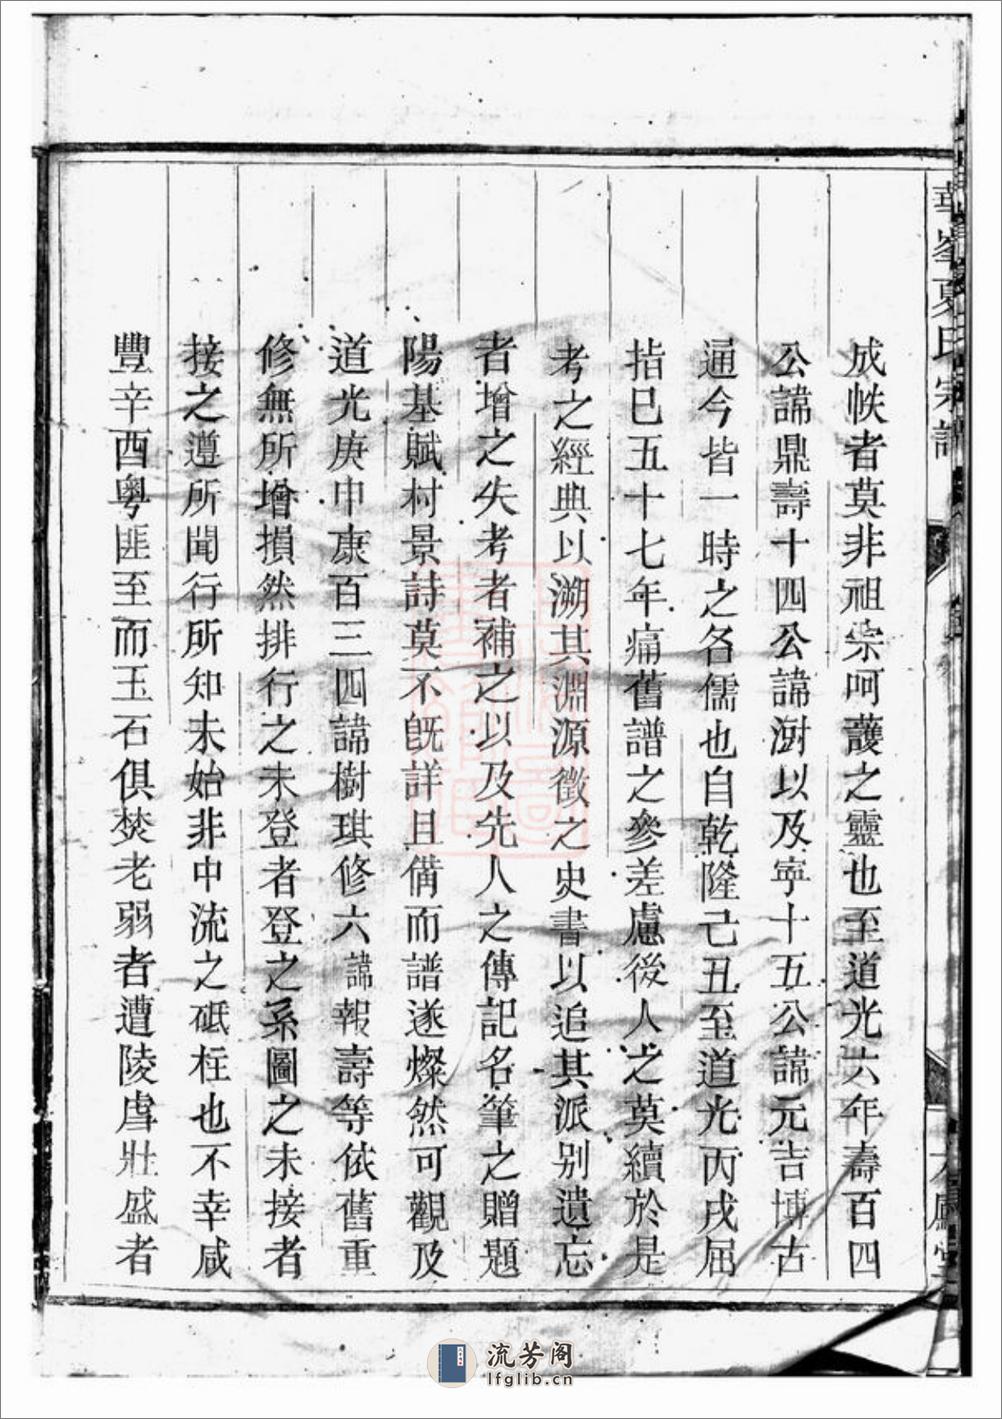 成帙者莫非祖宗呵護之靈也至道光六年壽百四
公諱鼎壽十四公諱澍以及寧十五公諱元吉博古
通今皆一時之名儒也自乾隆己丑至道光丙戌屈
指已五十七年痛舊譜之參差慮後人之莫續於是
考之經典以溯其淵源徵之史書以追其派別遺忘
者增之失考者補之以及先人之傳記名筆之贈題
陽基賦村景詩莫不旣詳且備而譜遂燦然可觀及
道光庚申康百三四諱樹琪修六諱報壽等依舊重
修無所增損然排行之未登者登之系圖之未接者
接之遵所聞行所知未始非中流之砥柱也不幸咸
豐辛酉粵匪至而玉石俱焚老弱者遭陵虐壯盛者
夏氏宗譜
流芳阁
lfglib.cn